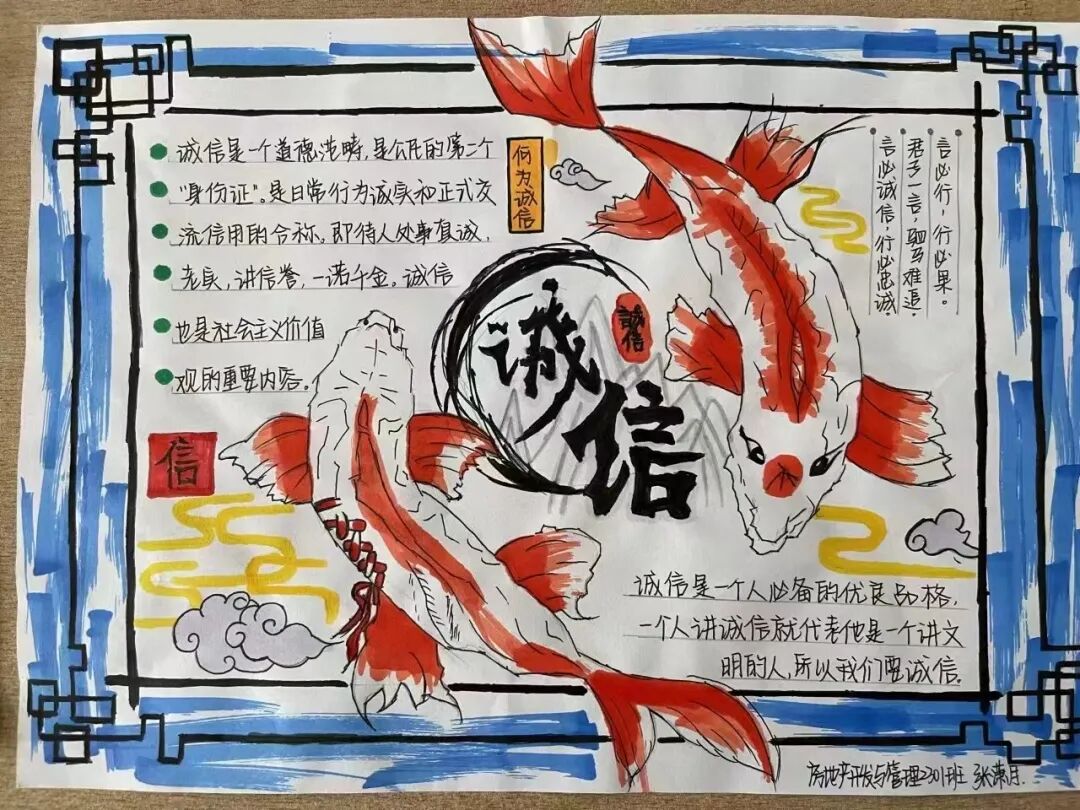 诚信是一个道德范畴,是公民的第二个
"身份证"。是日常行为诚实和正式交
流信用的合称、即待人处事真诚、
老实,讲信誉,一诺千金。诚信
也是社会主义价值
观的重要内容。
何为诚信
言必行,行必果。
君子一言,驷马难追。
言必诚信,行必忠诚。
诚信
誠信
信
诚信是一个人必备的优良品格,
一个人讲诚信就代表他是一个讲文
明的人,所以我们要诚信。
房地产开发与管理2301班 张 月